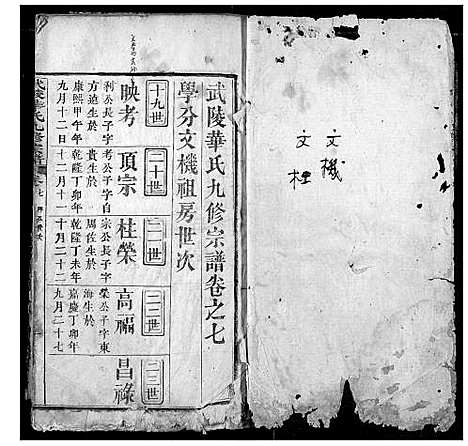 文機
文桂
武陵華氏九修宗譜卷之七
學分文機祖房世次
十九世
映考
利公長子字
方遠生於
康熙甲午年
九月十二日
二十世
頂宗
考公子字自
貴生於
乾隆丁卯年
十二月十一
二一世
桂榮
宗公長子字
馬佐生於
乾隆丁未年
十月二十二
二二世
高福
榮公子字東
海生於
嘉慶丁卯年
九月二十七
二三世
昌祿